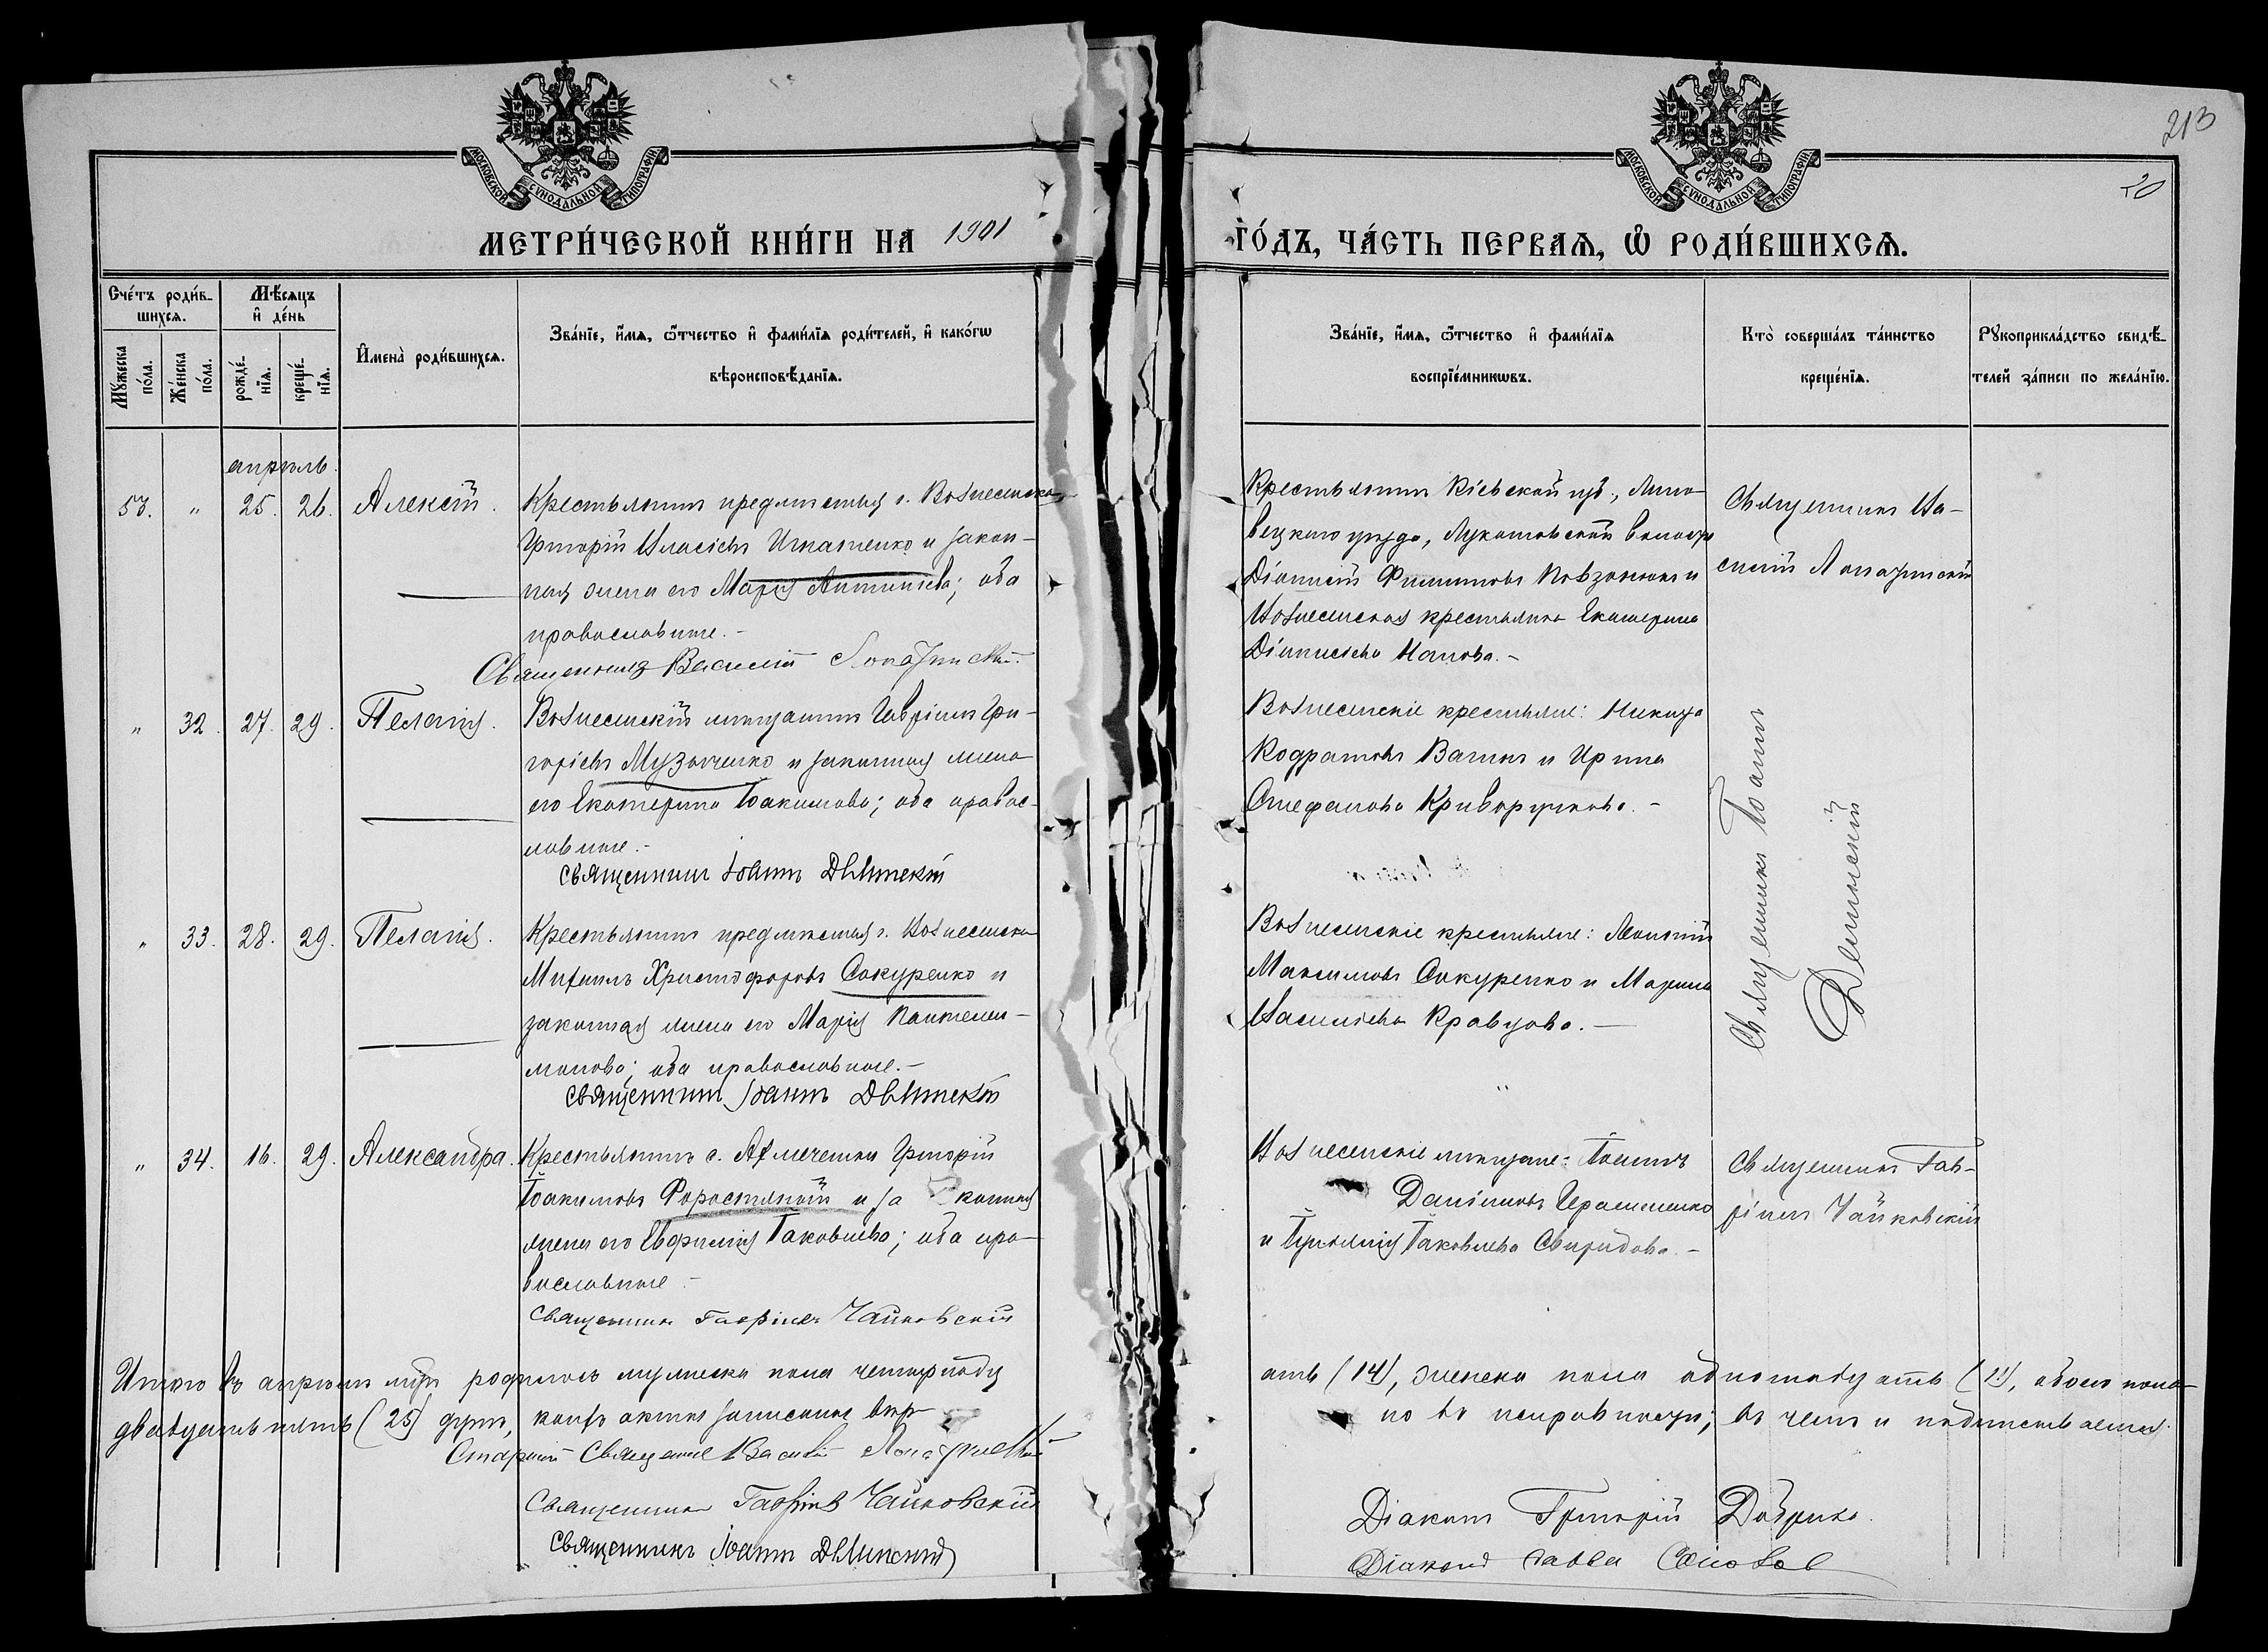 213
20
МОСКОВСКОЙ СѴНОДАЛЬНОЙ ТИПОГРАФІИ
МОСКОВСКОЙ СѴНОДАЛЬНОЙ ТИПОГРАФІИ
МЕТРИ́ЧЕСКОЙ КНИ́ГИ НА 1901
ГО́ДЪ, ЧА́СТЬ ПЕРВАѦ, Ѿ РОДИ́ВШИХСѦ.
Сче́тъ роди́в-
шихсѧ.
Мѣ́сяцъ
и̑ де́нь
Мꙋ́жеска
по́ла.
Же́нска
по́ла.
рожде́-
нїѧ.
креще́-
нїѧ.
И҆мена̀ роди́вшихсѧ.
Зва́нїе, и҆́мѧ, ѻ҆́тчество и҆ фами́лїѧ роди́телей, и҆ како́гѡ
вѣроисповѣ́данїѧ.
Зва́нїе, и҆́мѧ, ѻ҆́тчество и҆ фами́лїѧ
воспрїе́мникѡвъ.
Кто̀ соверша́лъ та́инство
креще́нїѧ.
Рꙋкоприкла́дство свидѣ́-
телей за́писи по жела́нїю.
апрѣль.
53. " 25. 26. Алексій.
Крестьянинъ предмѣстья г. Вознесенска
Григорій Власіевъ Игнатенко и закон-
ная жена его Марія Антипіева; оба
православные.-
Священникъ Василій Лопатинскій.
Крестьянинъ Кіевской губ., Липо-
вецкаго уѣзда, Лукашовской волости
Діонисій Филиповъ и
Вознесенская крестьянка Екатерина
Діонисіева Панова.-
Священникъ Ва-
силій Лопатинскій
" 32. 27. 29. Пелагія.
Вознесенскій мѣщанинъ Гавріилъ Гри-
горіевъ Музыченко и законная жена
его Екатерина Іоакимова; оба правос-
лавные.-
Священникъ Іоаннъ Двинскій
Вознесенскіе крестьяне: Никита
Кодратовъ Вагинъ и Ирина
Стефанова Криворучкова.-
Священникъ Іоаннъ
Двинскій
" 33. 28. 29. Пелагія.
Крестьянинъ предмѣстья г. Вознесенска
Михаилъ Христофоровъ Сокуренко и
законная жена его Марія Пантелеи-
монова; оба православные.-
Священникъ Іоаннъ Двинскій
Вознесенскіе крестьяне: Леонтій
Максимовъ Сокуренко и Марина
Василіева Кравцова.-
" 34. 16. 29. Александра.
Крестьянинъ с. Ахмечетки Григорій
Іоакимовъ Форостяный и за конная
жена его Евфимія Іаковлева; оба пра-
вославные.-
Священникъ Гавріилъ Чайковскій
Вознесенскіе мѣщане: Іоаннъ
Даніиловъ Герасименко
и Іуліанія Іаковлева Свиридова.-
Священникъ Гав-
ріилъ Чайковскій
Итого въ апрѣлѣ мѣс. родилось мужеска пола четырнадц
ать (14), женска пола одиннадцать (11), обоего пола
двадцать пять (25) душъ, коихъ акты записаны вѣр
но въ исправности; въ чемъ и подписываемся
Старшій Священникъ Василій Лопатинскій
Священникъ Гавріилъ Чайковскій
Священникъ Іоаннъ Двинскій
Діаконъ Григорій
Діаконъ Савва